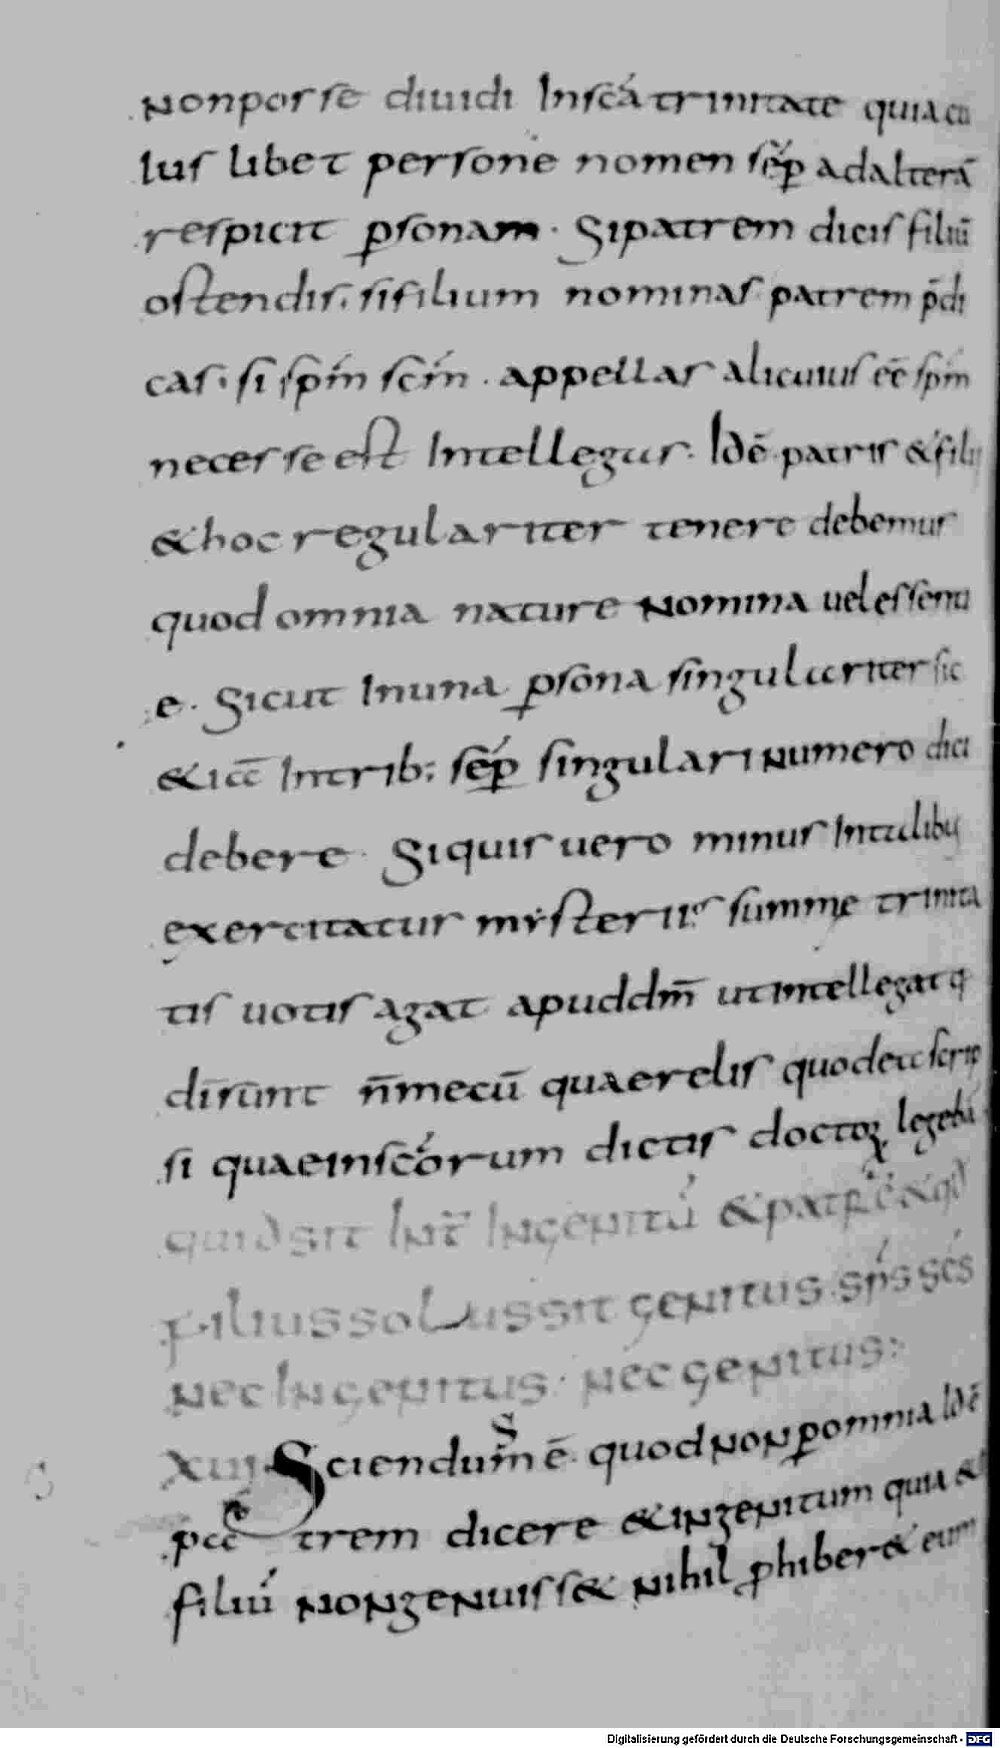 nonposse diuidi Inscá trinitate quia cu
ius libet persone nomen sēp adalterā
respicit ꝑsonam. Sipatrem dicis filiū
ostendis. sifilium nominas patrem p̄di
cas. si sp̄m sc̄m. appellas alicuius eē sp̄m
necesse est Intellegas. Idē patris & filii
& hoc regulariter tenere debemus
quod omnia nature nomina uel essenti
e. Sicut Inuna ꝑsona singulariter sic
& ita Intrib; sēp singulari numero dici
debere. Siquis uero minus Intalibus
exercitatur mysteriis summe trinita
tis uotis agat apuddm̄ utintellegat q
dīsunt n̄mecū quaerelis quodea scrip
si quaeinscōrum dictis doctoꝝ legebā
quid sit Int̄ Ingenitū & patrē & qđ
filius solus sit genitus. sp̄s scs
nec Ingenitus. nec genitus:
XIII Sciendum ē. quod non ꝑomnia Idē
ēē
s
pa trem dicere & ingenitum quia &
filiū nongenuiss& nihil ꝓhiber& eum